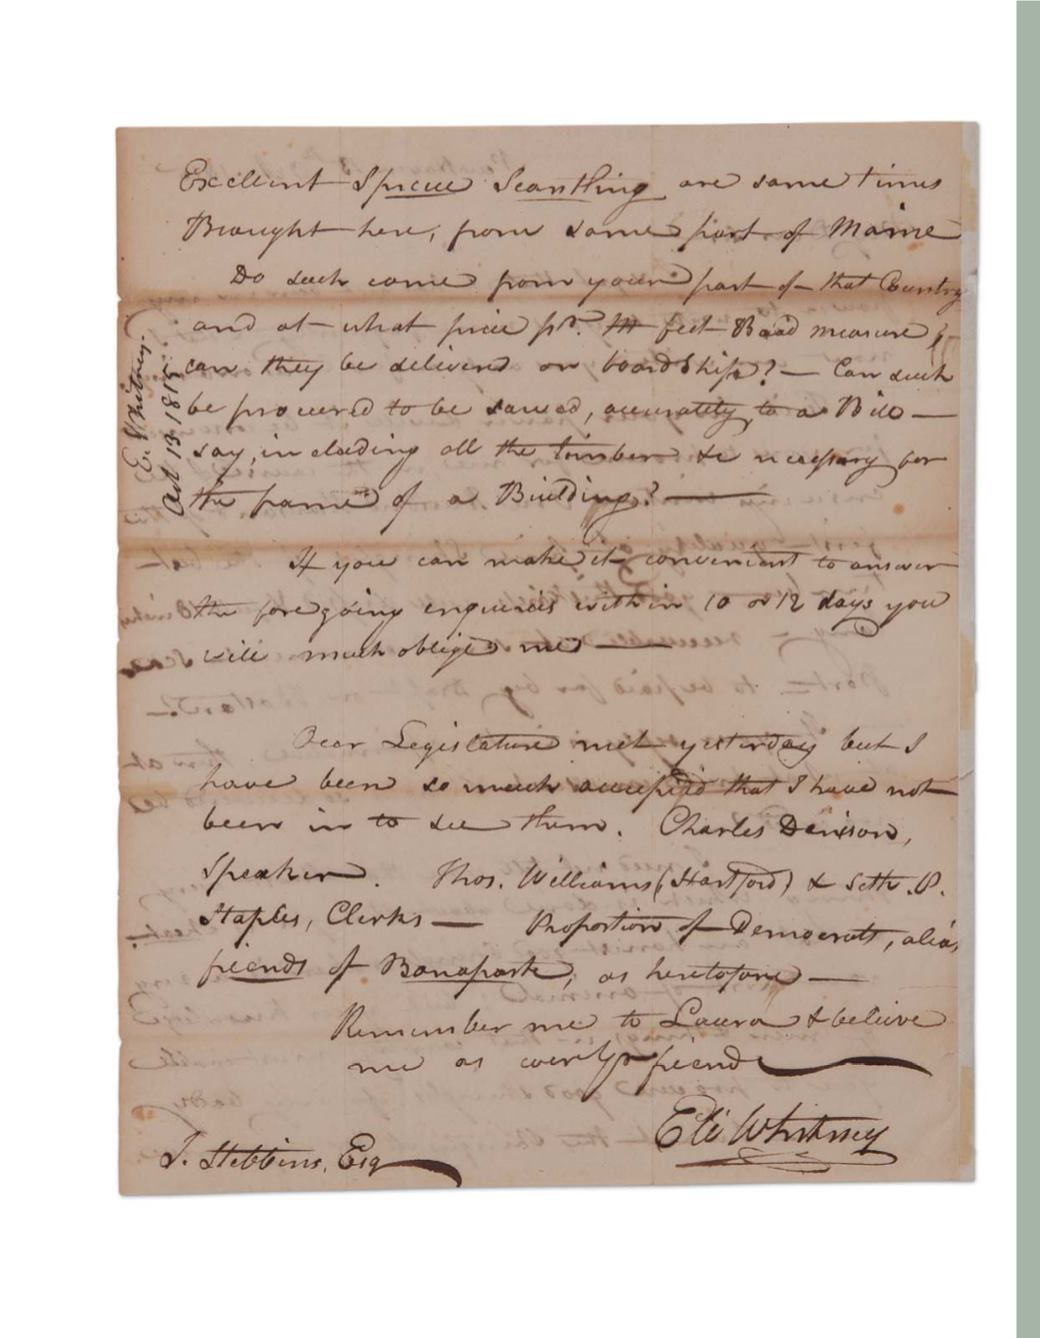 Excellent Spruce Scantling are some times
Brought here, from some part of Maine
Do such come from your part of that Country
and at what price pr. M feet Board measure
can they be delivered on board Ship? — Can such
be procured to be sawed, accurately, to a Bill —
say, including all the timber &c necessary for
the frame of a Building? —
If you can make it convenient to answer
the foregoing enquiries within 10 or 12 days you
will much oblige me —
Our Legislature met yesterday but I
have been so much occupied that I have not
been in to see them. Charles Denison,
Speaker. Thos. Williams (Hartford) & Seth P.
Staples, Clerks — Proportion of Democrats, alias
friends of Bonaparte, as heretofore —
Remember me to Laura & believe
me as ever yr friend
Eli Whitney
J. Stebbins, Esq
E. Whitney.
Oct 13 1815.